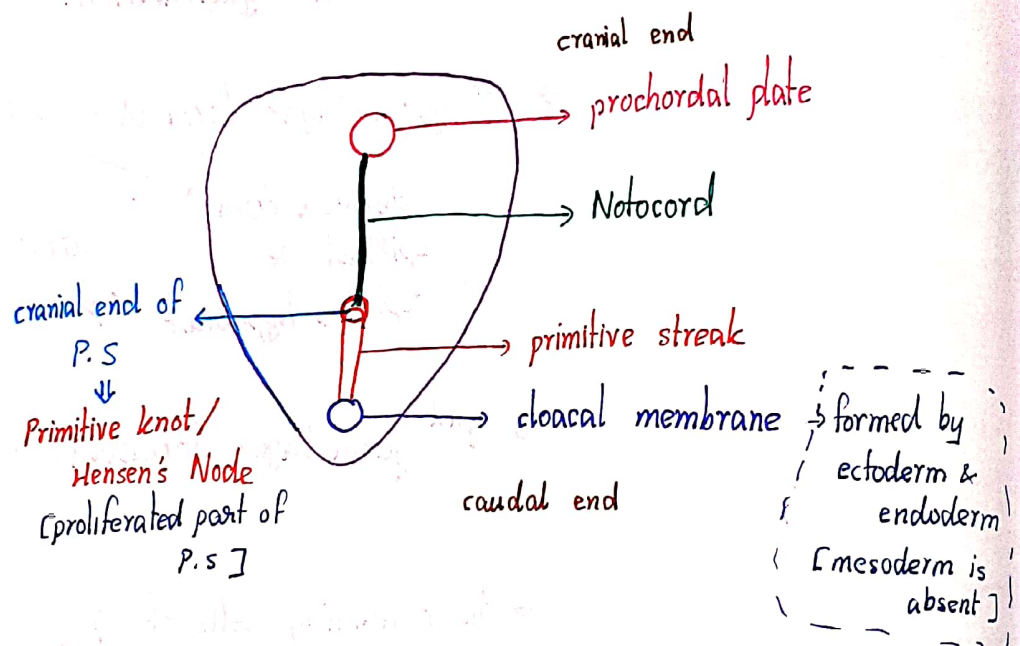 cranial end
prochordal plate
Notocord
cranial end of
P.S
⇓
Primitive knot/
Hensen's Node
[proliferated part of
P.S]
primitive streak
cloacal membrane → formed by
ectoderm &
endoderm
[mesoderm is
absent]
caudal end